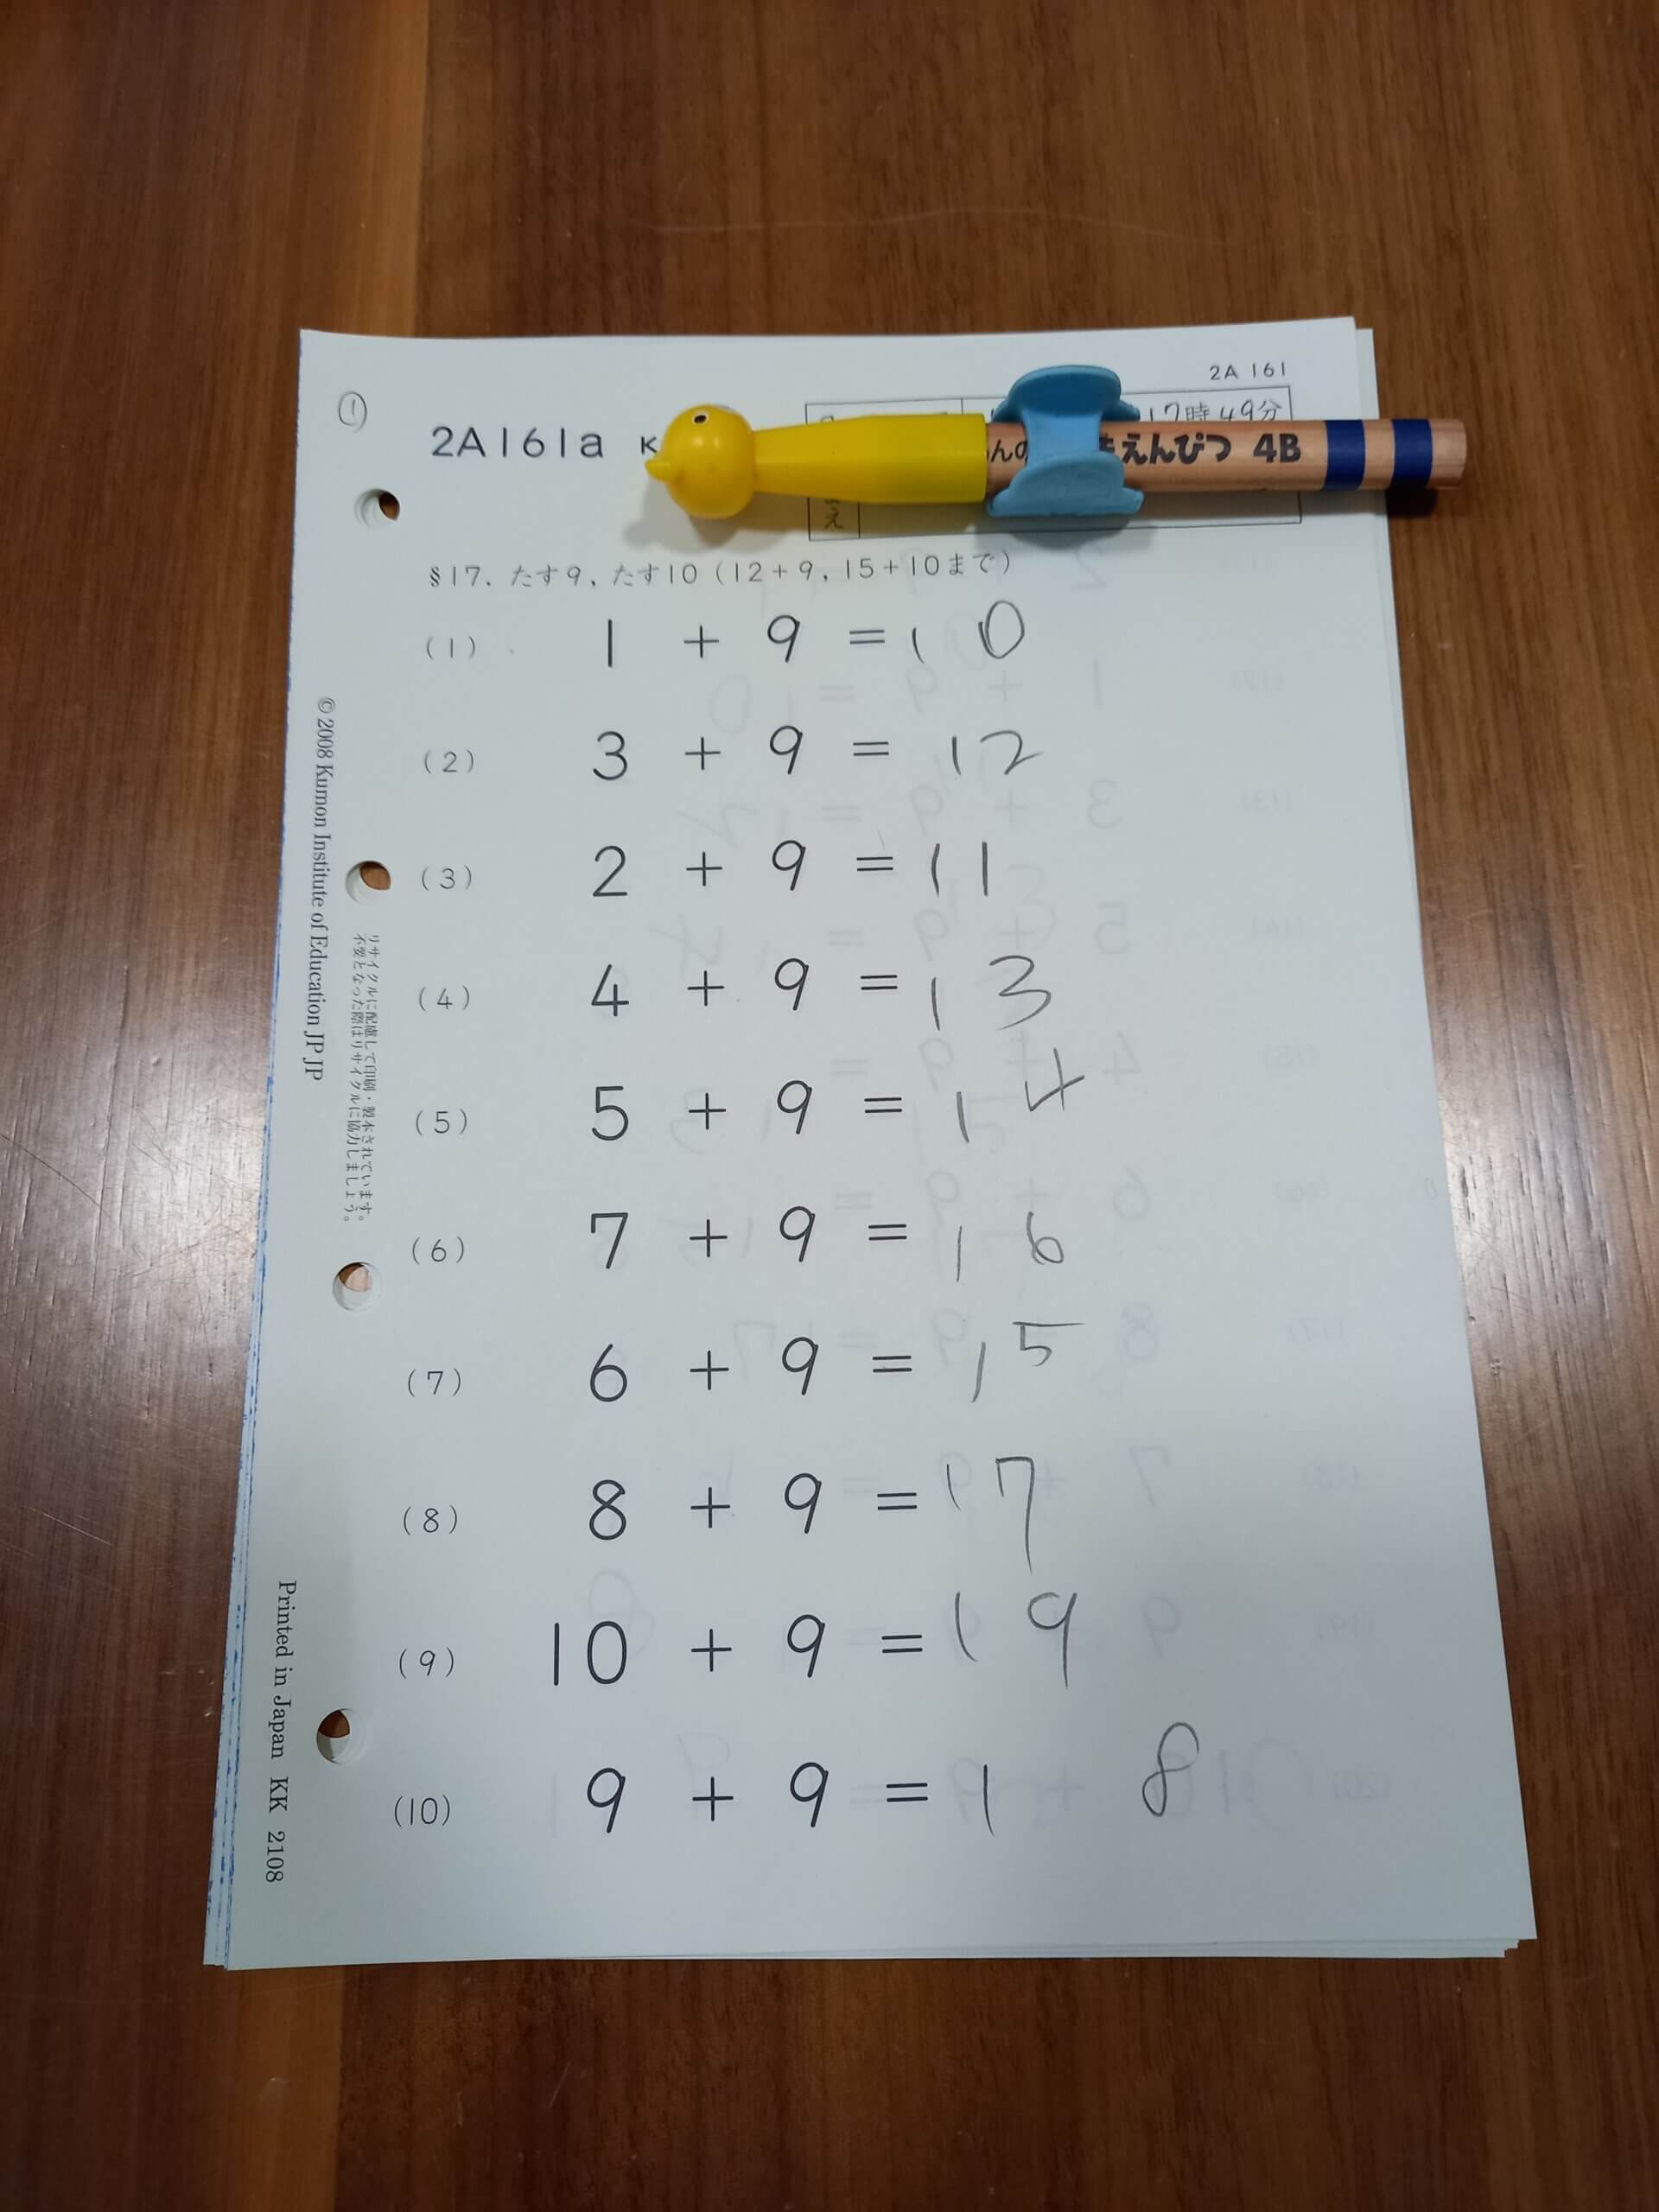 2A 161
①
2A161a K
17時49分
んの えんぴつ 4B
§17. たす9, たす10 (12+9, 15+10まで)
(1) 1 + 9 = 10
(2) 3 + 9 = 12
(3) 2 + 9 = 11
(4) 4 + 9 = 13
(5) 5 + 9 = 14
(6) 7 + 9 = 16
(7) 6 + 9 = 15
(8) 8 + 9 = 17
(9) 10 + 9 = 19
(10) 9 + 9 = 18
© 2008 Kumon Institute of Education JP JP
リサイクルに配慮して印刷・製本されています。
不要となった際はリサイクルに協力しましょう。
Printed in Japan KK 2108